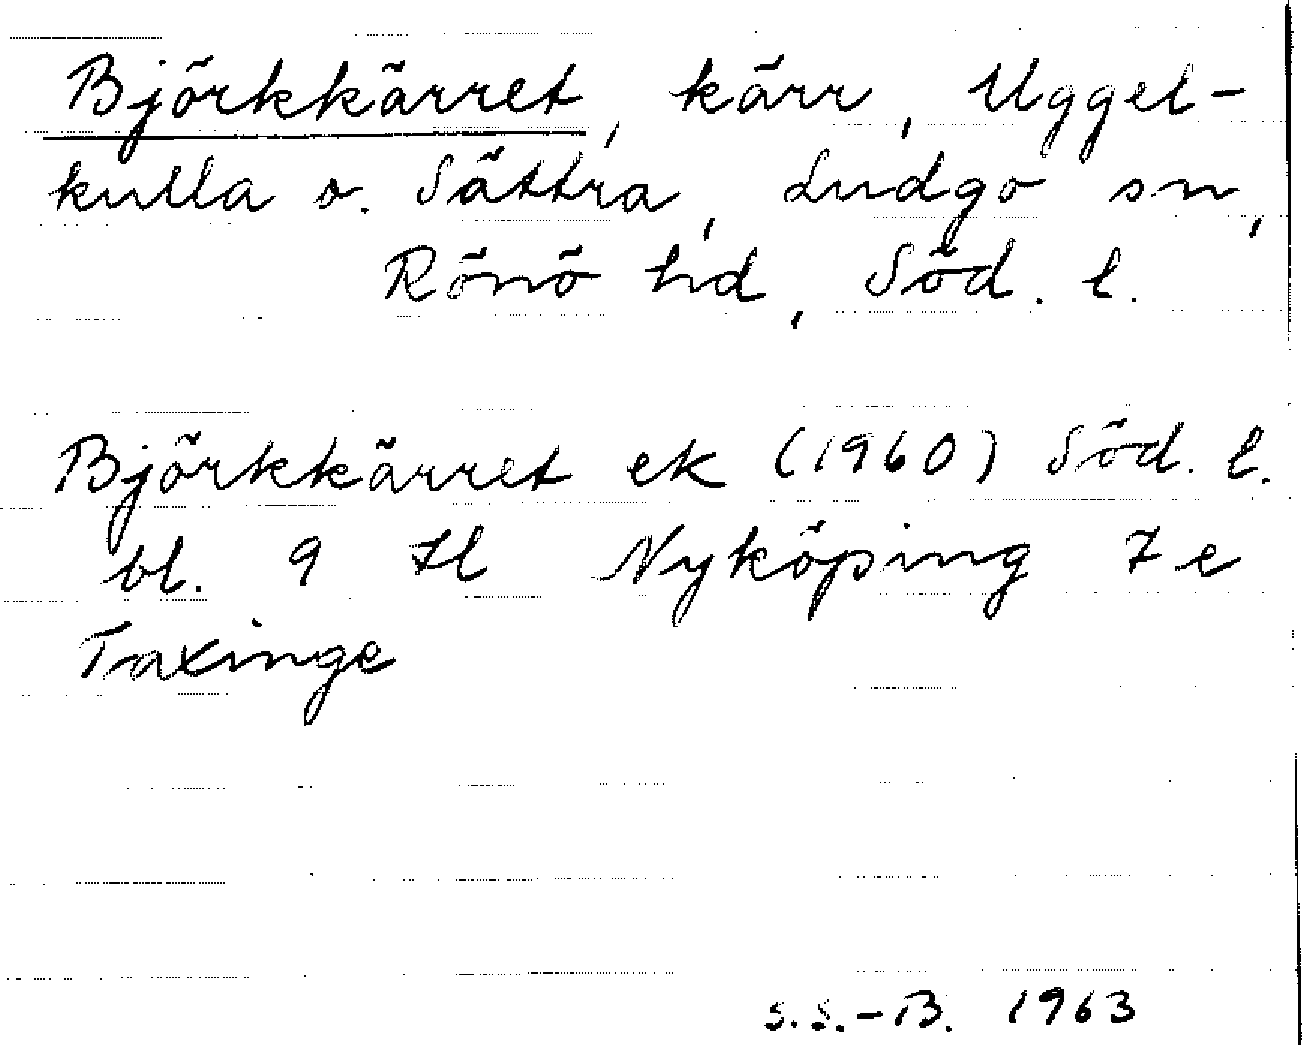 Björkkärret, kärr, Uggel-
kulla o. Sättra, Ludgo sn,
Rönö hd, Söd. l.
Björkkärret ek (1960) Söd. l.
bl. 9 H Nyköping 7 e
Taxinge
S.S.-B. 1963